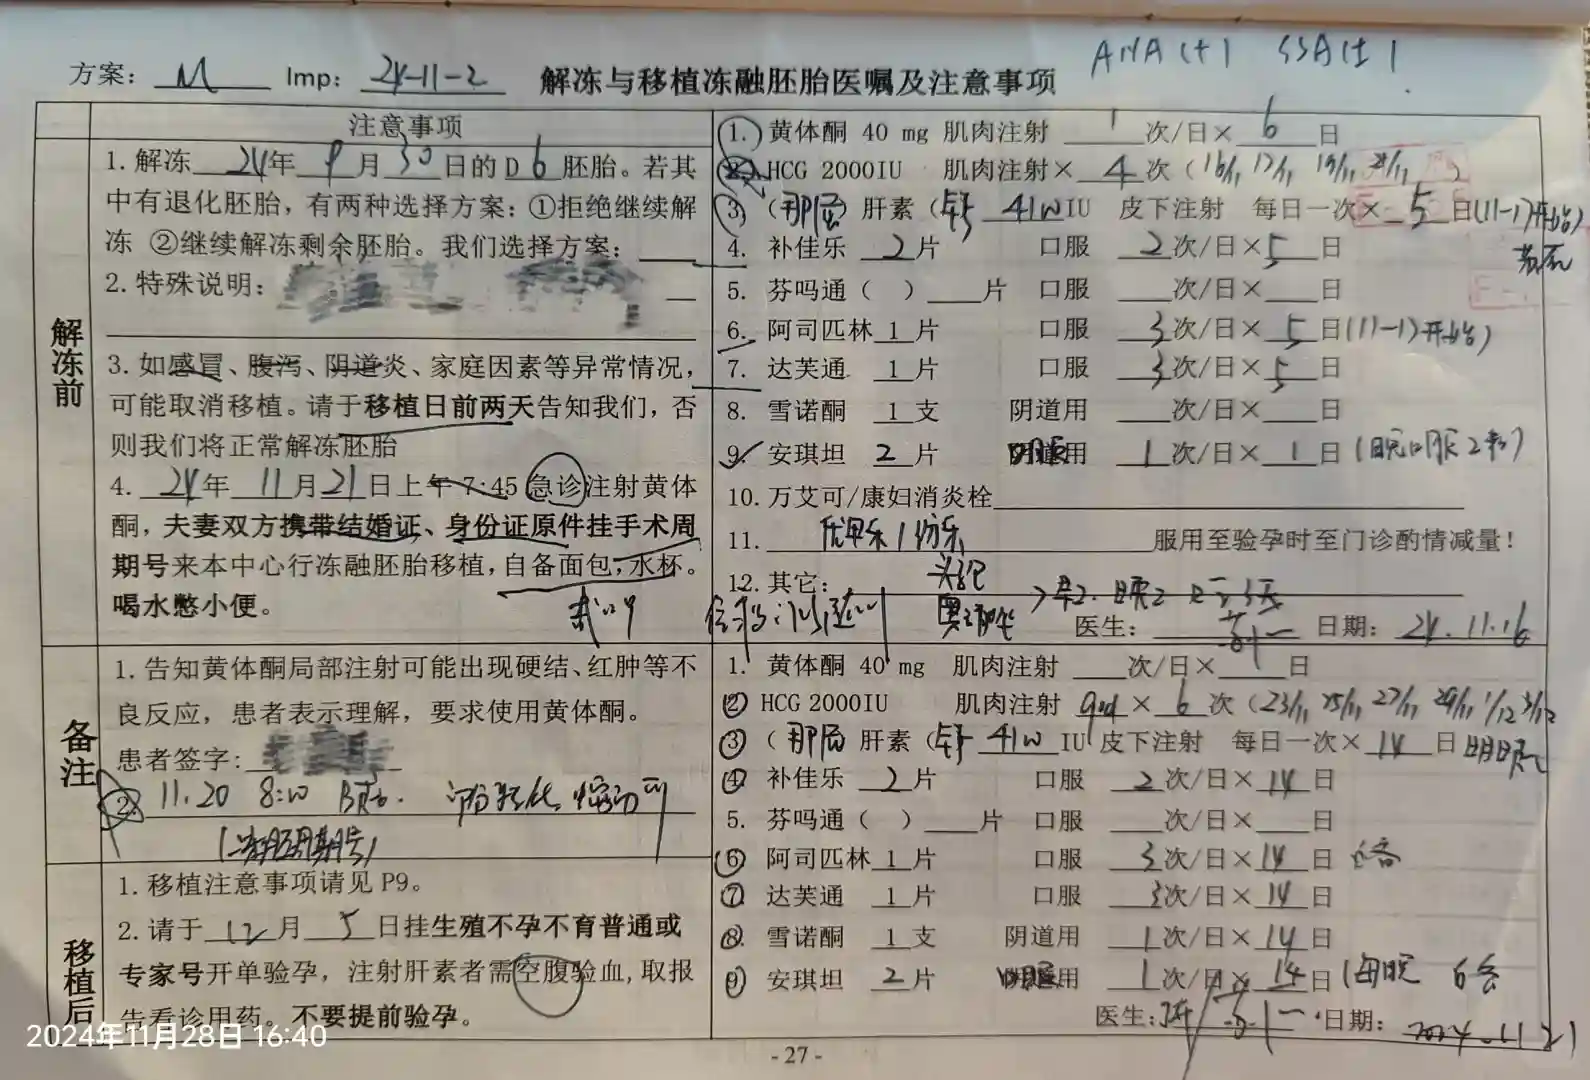 ANA(+) SSA(±)
方案: M Imp: 24-11-2 解冻与移植冻融胚胎医嘱及注意事项
注意事项
解冻前
1.解冻 24年 9月 30日的D 6胚胎。若其
中有退化胚胎，有两种选择方案：①拒绝继续解
冻 ②继续解冻剩余胚胎。我们选择方案：
2.特殊说明：
3.如感冒、腹泻、阴道炎、家庭因素等异常情况，
可能取消移植。请于移植日前两天告知我们，否
则我们将正常解冻胚胎
4. 24年 11月21日上午7:45急诊注射黄体
酮，夫妻双方携带结婚证、身份证原件挂手术周
期号来本中心行冻融胚胎移植，自备面包，水杯。
喝水憋小便。
1. 黄体酮 40 mg 肌肉注射 1次/日× 6日
2. HCG 2000IU 肌肉注射× 4次 (16/11, 17/11, 19/11,
3. (那屈)肝素( 41wIU 皮下注射 每日一次× 5日(11-17开始)
4. 补佳乐 2片 口服 2次/日×5日
5. 芬吗通（ ）片 口服 次/日× 日
6. 阿司匹林 1片 口服 3次/日× 5日(11-17开始)
7. 达芙通 1片 口服 3次/日×5日
8. 雪诺酮 1支 阴道用 次/日× 日
9. 安琪坦 2片 用 1次/日× 1日(晚口服2粒)
10.万艾可/康妇消炎栓
11. 优甲乐 服用至验孕时至门诊酌情减量！
12.其它：头孢
医生： 日期：24.11.16
备注
1.告知黄体酮局部注射可能出现硬结、红肿等不
良反应，患者表示理解，要求使用黄体酮。
患者签字：
2. 11.20 8:00
(冻胚周期号)
移植后
1.移植注意事项请见P9。
2.请于 12月 5日挂生殖不孕不育普通或
专家号开单验孕，注射肝素者需空腹验血，取报
告看诊用药。不要提前验孕。
1. 黄体酮 40 mg 肌肉注射 次/日× 日
② HCG 2000IU 肌肉注射 qod× 6次 (23/11, 25/11, 27/11, 29/11, 1/12 3/12
③ (那屈 肝素( 41w IU 皮下注射 每日一次× 14日
④ 补佳乐 2片 口服 2次/日×14日
5. 芬吗通（ ）片 口服 次/日× 日
⑥ 阿司匹林 1片 口服 3次/日×14日
⑦ 达芙通 1片 口服 3次/日×14日
⑧. 雪诺酮 1支 阴道用 1次/日×14日
⑨ 安琪坦 2片 用 1次/日×14日(每晚 6盒
医生: 日期：2024.11.21
- 27 -
2024年11月28日 16:40